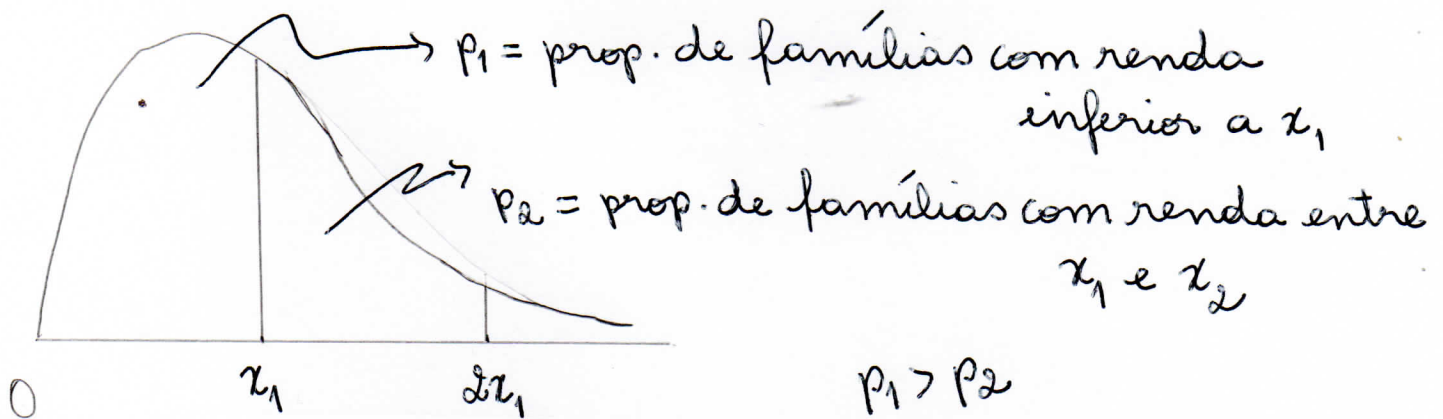 p₁ = prop. de famílias com renda
inferior a x₁
p₂ = prop. de famílias com renda entre
x₁ e x₂
0 x₁ 2x₁ p₁ > p₂